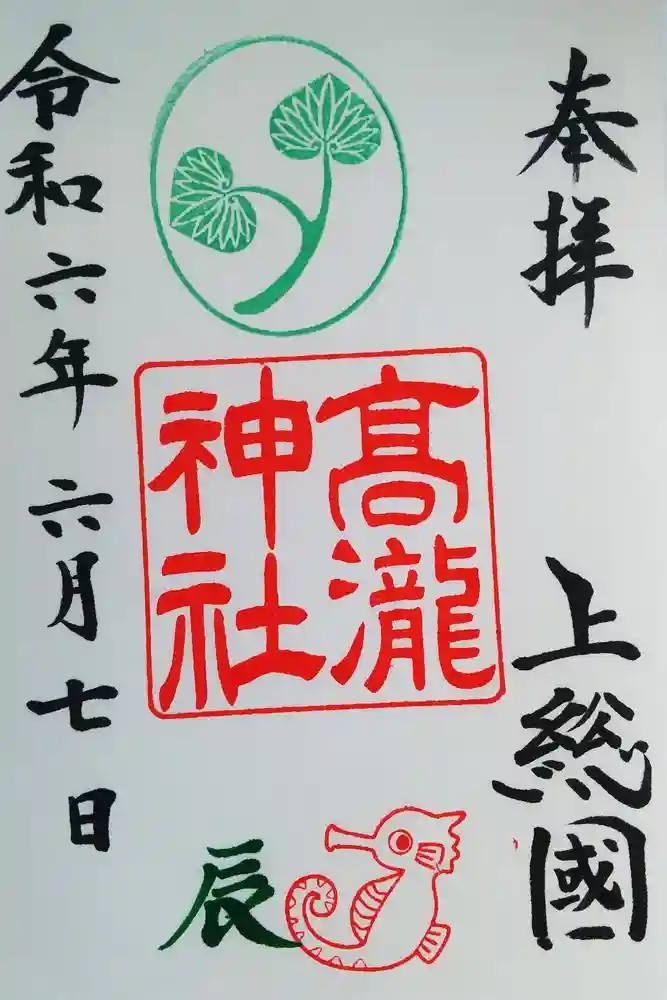 奉拝
上総國
髙瀧
神社
辰
令和六年六月七日